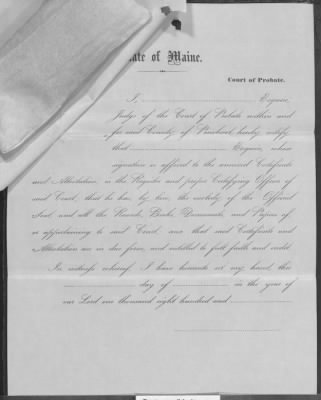 ate of Maine.
Court of Probate.
I, Esquire,
Judge of the Court of Probate within and
for said County of Penobscot, hereby certify
that Esquire, whose
signature is affixed to the annexed Certificate
and Attestation, is the Register and proper Certifying Officer of
said Court; that he has, by law, the custody of the Official
Seal, and all the Records, Books, Documents, and Papers of
or appertaining to said Court, and that said Certificate and
Attestation are in due form, and entitled to full faith and credit.
In witness whereof I have hereunto set my hand, this
day of in the year of
our Lord one thousand eight hundred and